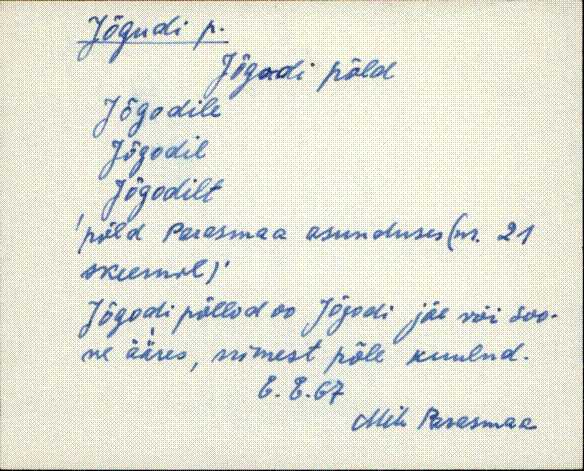 Jõgudi p.
Jõgodi põld
Jõgodile
Jõgodil
Jõgodilt
'põld Parasmaa asunduses (nr. 21
skeemil)'
Jõgodi põllod oo Jõgodi jõe või soo-
ne ääres, nimest põle kuulnd.
E. E. 67
Mih Parasmaa